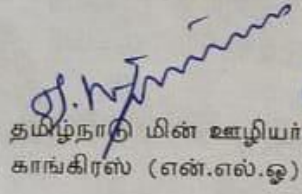 தமிழ்நாடு மின் ஊழியர்
காங்கிரஸ் (என்.எல்.ஓ)